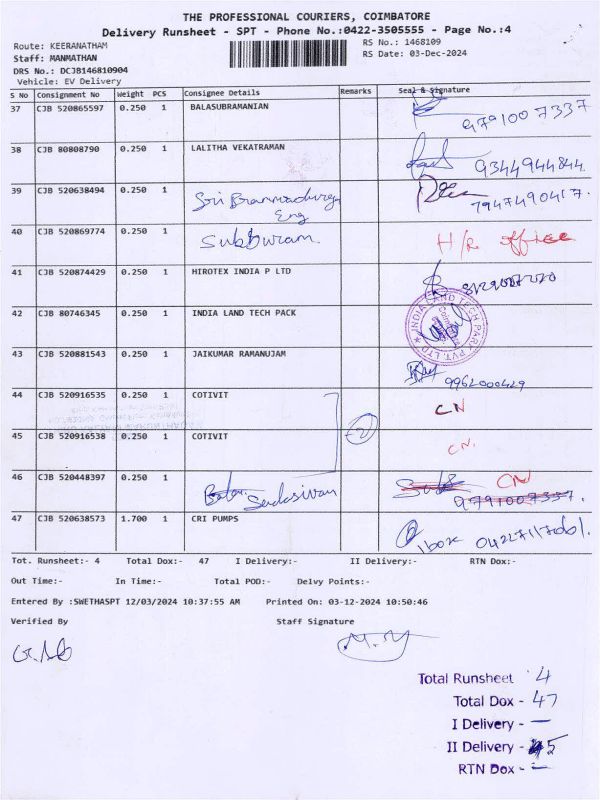 THE PROFESSIONAL COURIERS, COIMBATORE
Delivery Runsheet - SPT - Phone No.:0422-3505555 - Page No.:4
Route: KEERANATHAM
RS No.: 1468109
Staff: MANMATHAN
RS Date: 03-Dec-2024
DRS No.: DCJB146810904
Vehicle: EV Delivery
S No Consignment No Weight PCS Consignee Details Remarks Seal & Signature
37 CJB 520865597 0.250 1 BALASUBRAMANIAN 9791007337
38 CJB 80808790 0.250 1 LALITHA VEKATRAMAN 9344944844
39 CJB 520638494 0.250 1 Sri 7947490417.
Eng
40 CJB 520869774 0.250 1 SubBuram. H/R office
41 CJB 520874429 0.250 1 HIROTEX INDIA P LTD
42 CJB 80746345 0.250 1 INDIA LAND TECH PACK INDIA LAND TECH PARK PVT. LTD
43 CJB 520881543 0.250 1 JAIKUMAR RAMANUJAM 9962000429
44 CJB 520916535 0.250 1 COTIVIT CN
45 CJB 520916538 0.250 1 COTIVIT 2 CN.
46 CJB 520448397 0.250 1 Sadasivan CN
9791007337.
47 CJB 520638573 1.700 1 CRI PUMPS 1box
Tot. Runsheet:- 4 Total Dox:- 47 I Delivery:- II Delivery:- RTN Dox:-
Out Time:- In Time:- Total POD:- Delvy Points:-
Entered By :SWETHASPT 12/03/2024 10:37:55 AM Printed On: 03-12-2024 10:50:46
Verified By Staff Signature
M.Y
Total Runsheet 4
Total Dox - 47
I Delivery - —
II Delivery - 45
RTN Dox - —